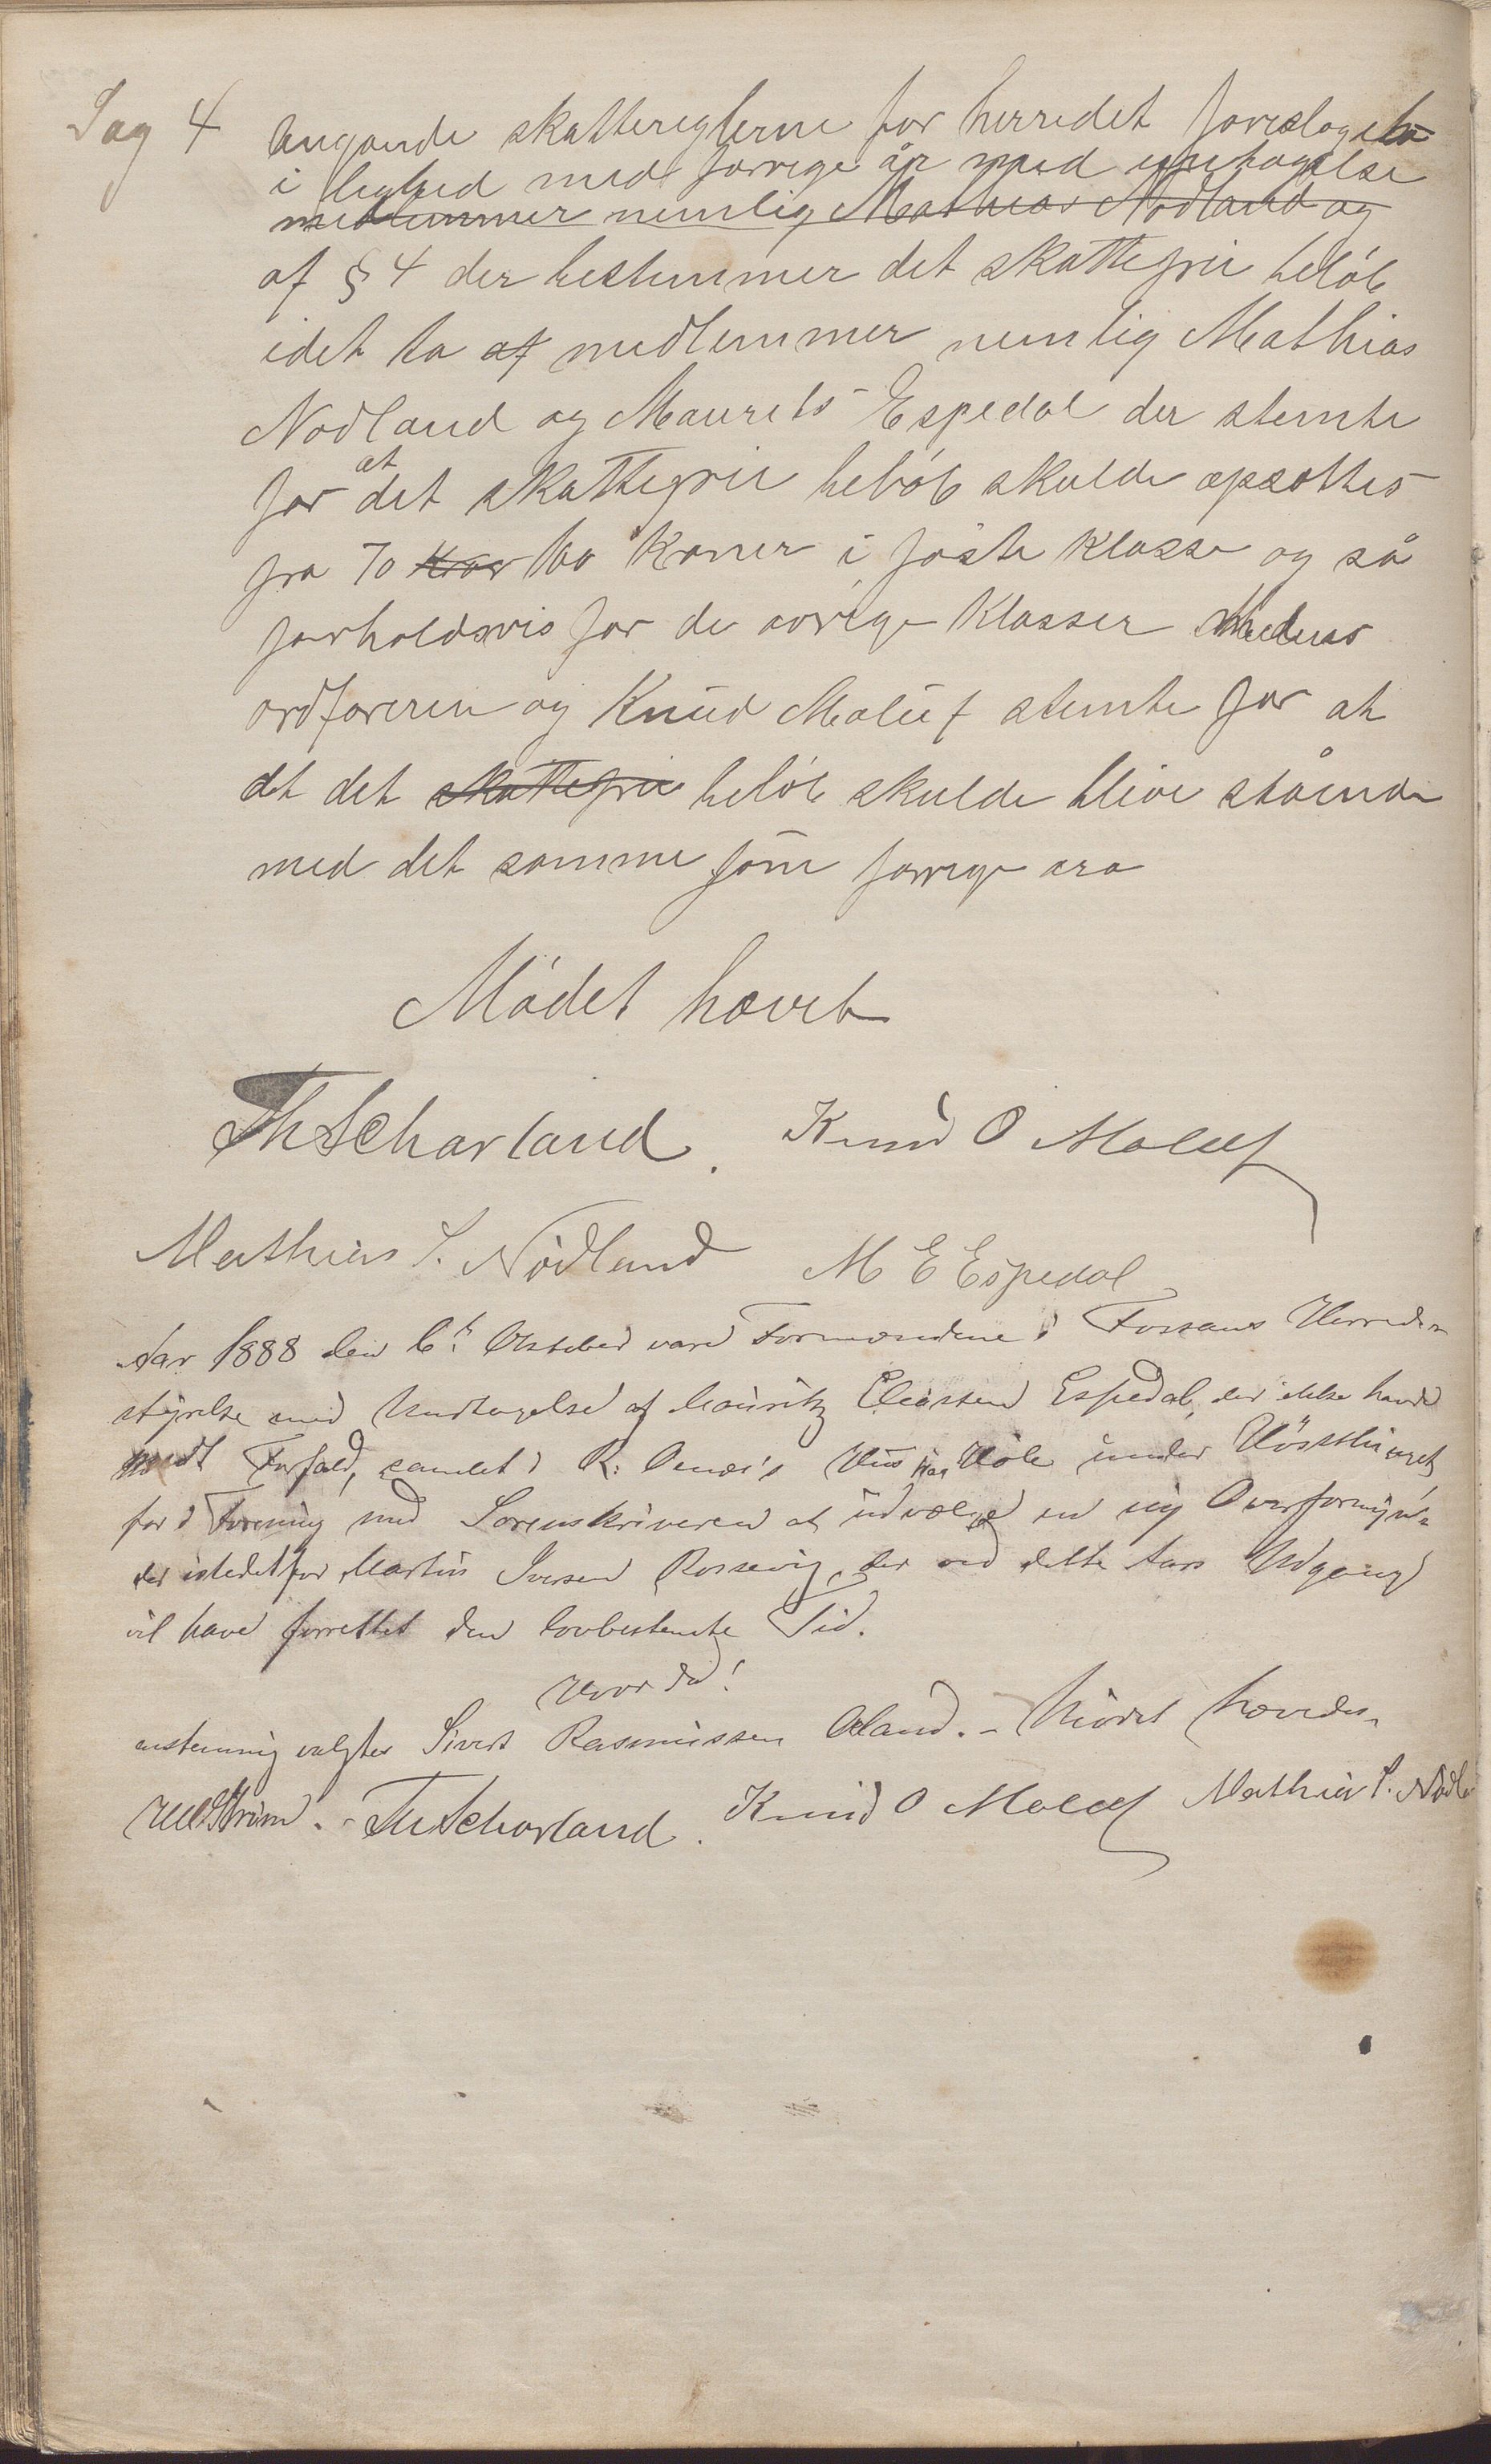 Sag 4 Angaende skattereglerne for herredet foreslages
i lighed med forrige år med undtagelse
medlemmer nemlig Mathias Nödland og
af § 4 der bestemmer det skattefrie belöb
idet to af medlemmer nemlig Mathias
Nodland og Maurits Espedal der stemte
for at det skattefrie belöb skulde opsættes
fra 70 Kro 100 Kroner i föste klasse og så
forholdsvis for de ovrige klasser Medens
ordforeren og Knud Maluf stemte for at
dt det skattefrie belöb skulde blive stående
med det somme som forrige ars
Mödet hævet
Th Scharland. Knud O Maluf
Mathias S. Nödland M E Espedal
Aar 1888 den 6t Oktober vare Formændene i Fossans Herreds-
styrelse med Undtagelse af Mauritz Eliassen Espedal, der ikke havde
meldt Forfald, samlet i R. Oenæs's Hus paa Höle under Hösttinget
for i Forening med Sorenskriveren at udvælge en ny Overformyn-
der istedetfor Martin Iversen Rossavig, der ved dette Aars Udgang
vil have forrettet den lovbestemte Tid.
Hvorda!
enstemmig valgtes Sivert Rasmussen Oland. - Mödet hævedes.
Th Scharland. Knud O Maluf Mathias S. Nödl